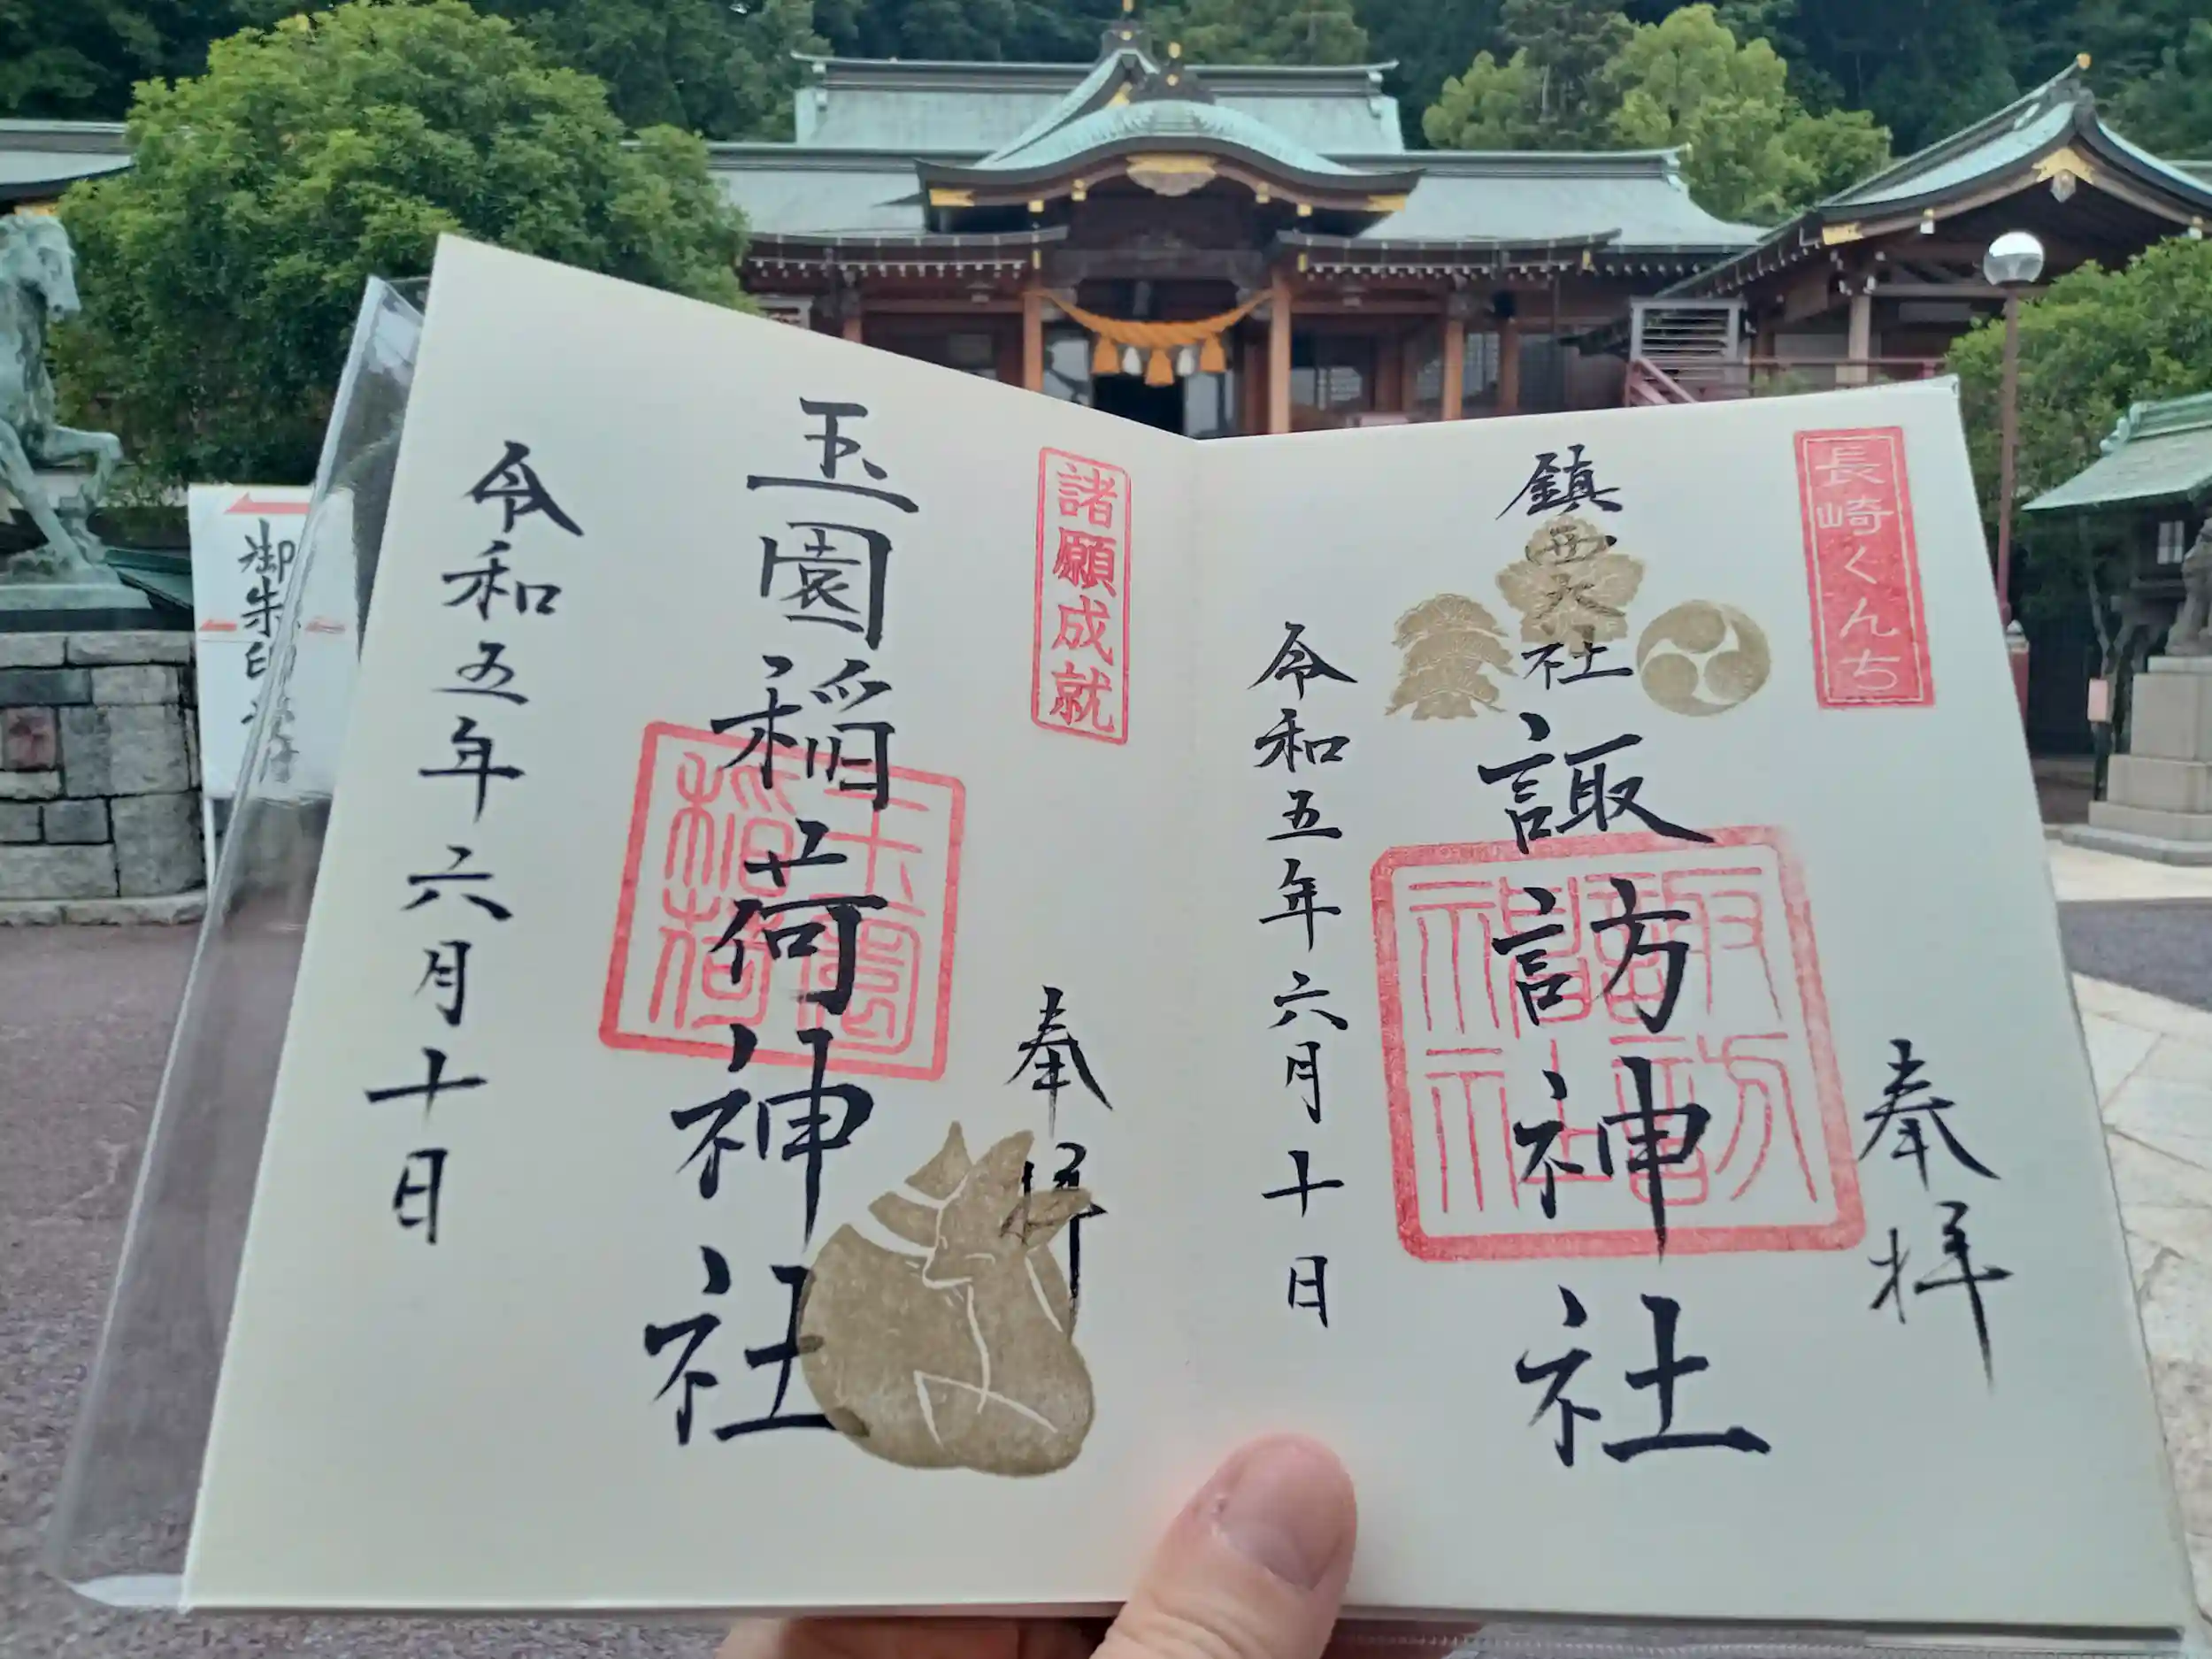 長崎くんち
奉拝
鎮西大社
諏訪神社
諏訪神社
令和五年六月十日
諸願成就
奉拝
玉園稲荷神社
玉園稲荷
令和五年六月十日
御朱印